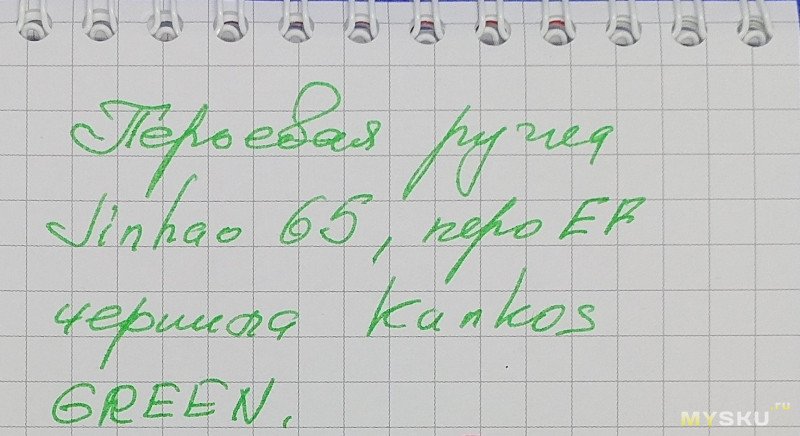 Перьевая ручка
Jinhao 65, перо EF
чернила Kankos
GREEN.
MYSKU.ru